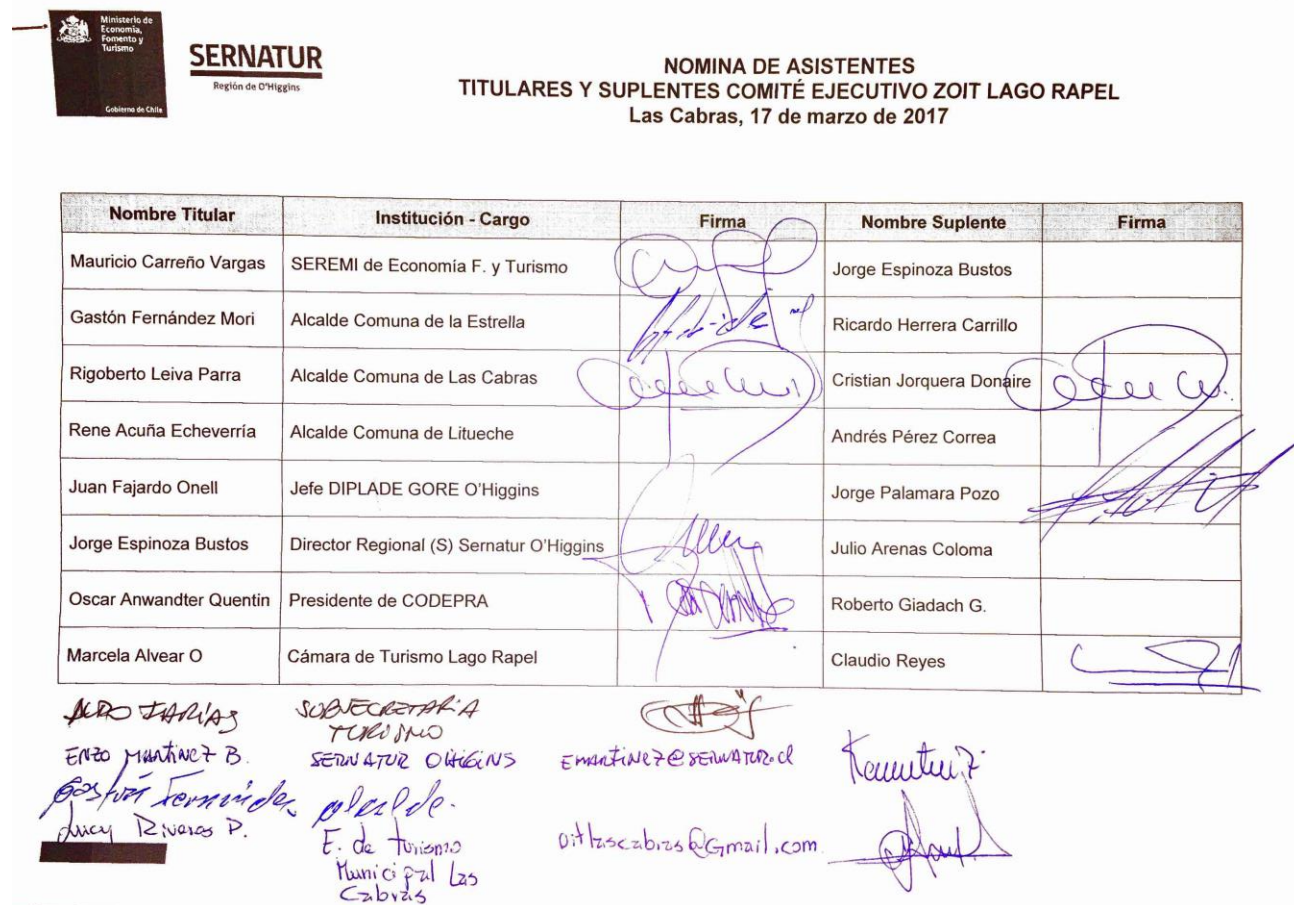 Ministerio de
Economía,
Fomento y
Turismo
Gobierno de Chile
SERNATUR
Región de O'Higgins
NOMINA DE ASISTENTES
TITULARES Y SUPLENTES COMITÉ EJECUTIVO ZOIT LAGO RAPEL
Las Cabras, 17 de marzo de 2017
Nombre Titular Institución - Cargo Firma Nombre Suplente Firma
Mauricio Carreño Vargas SEREMI de Economía F. y Turismo Jorge Espinoza Bustos
Gastón Fernández Mori Alcalde Comuna de la Estrella Ricardo Herrera Carrillo
Rigoberto Leiva Parra Alcalde Comuna de Las Cabras Cristian Jorquera Donaire
Rene Acuña Echeverría Alcalde Comuna de Litueche Andrés Pérez Correa
Juan Fajardo Onell Jefe DIPLADE GORE O'Higgins Jorge Palamara Pozo
Jorge Espinoza Bustos Director Regional (S) Sernatur O'Higgins Julio Arenas Coloma
Oscar Anwandter Quentin Presidente de CODEPRA Roberto Giadach G.
Marcela Alvear O Cámara de Turismo Lago Rapel Claudio Reyes
SUBSECRETARIA
TURISMO
ENZO MARTINEZ B. SERNATUR OHIGGINS EMARTINEZ@SERNATUR.cl
Gastón Fernández alcalde.
Lucy Riveros P. E. de Turismo oitlascabras@Gmail.com
Municipal Las
Cabras